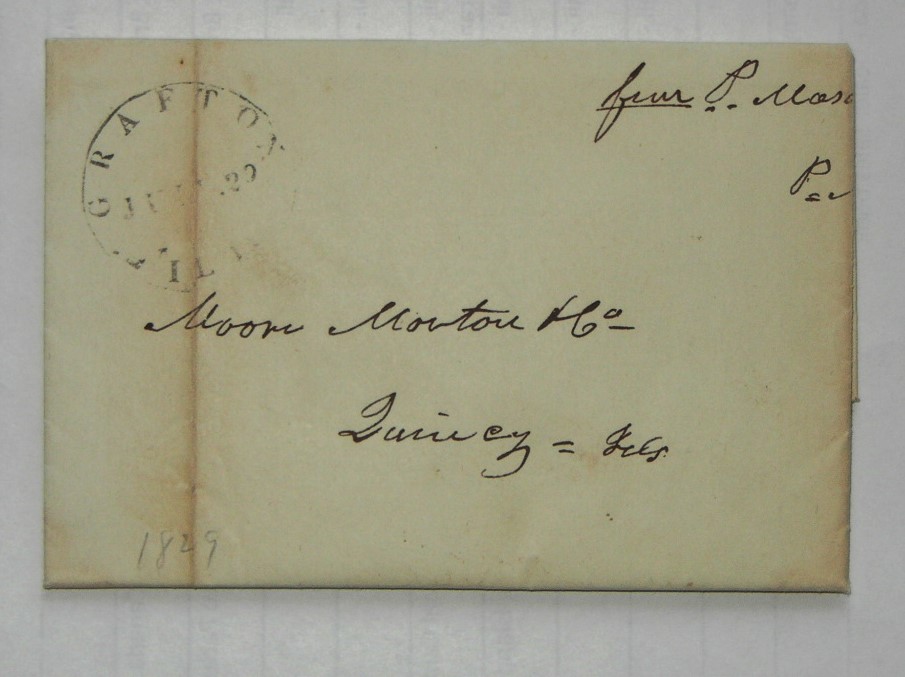 GRAFTON
free P. Maso
P
Moore Morton & Co
Quincy = Ills
1829